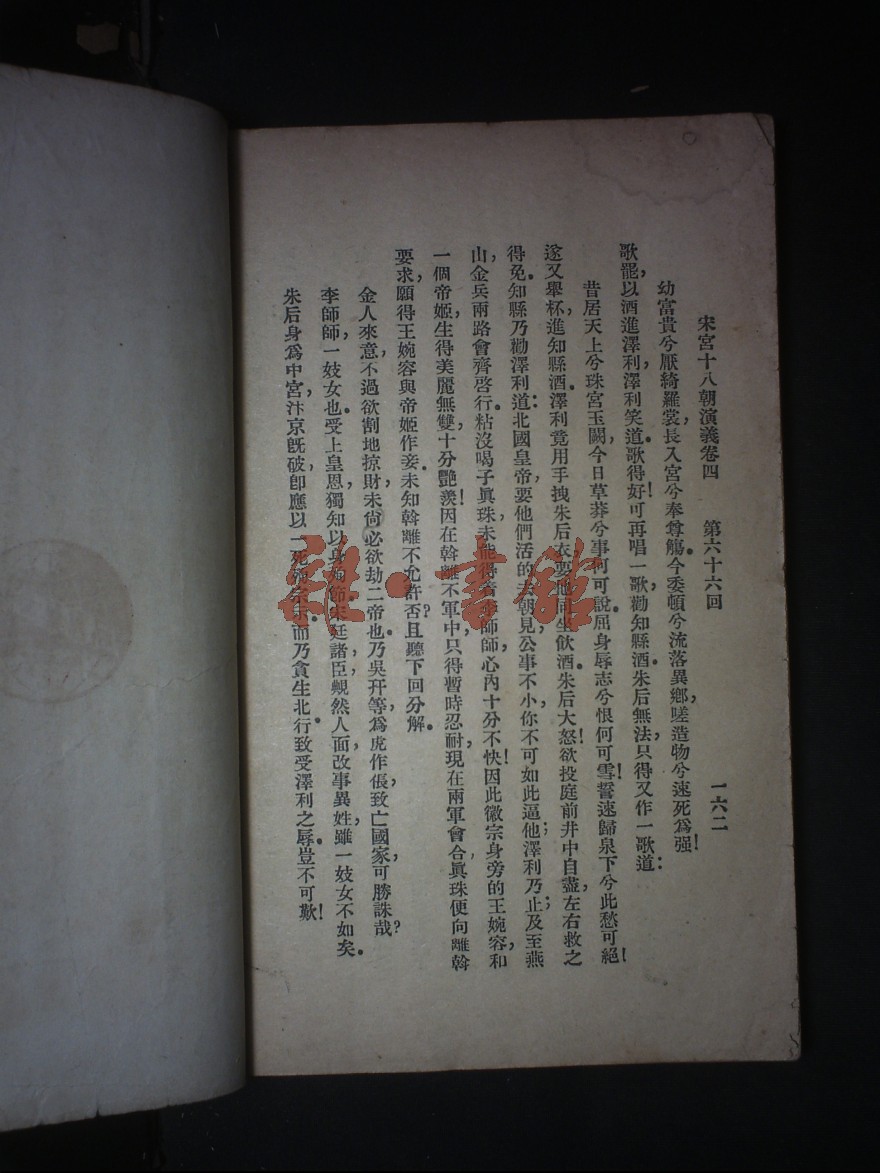 宋宮十八朝演義卷四　第六十六回　一六二
幼富貴兮厭綺羅裳，長入宮兮奉尊觴。今委頓兮流落異鄉，嗟造物兮速死爲强！
歌罷，以酒進澤利，澤利笑道。歌得好！可再唱一歌，勸知縣酒。朱后無法，只得又作一歌道：
昔居天上兮珠宮玉闕，今日草莽兮事何可說。屈身辱志兮恨何可雪！誓速歸泉下兮此愁可絕！
遂又舉杯，進知縣酒。澤利竟用手拽朱后衣，要他同坐飲酒。朱后大怒，欲投庭前井中自盡，左右救之
得免。知縣乃勸澤利道：北國皇帝，要他們活的去朝見，公事不小，你不可如此逼他；澤利乃止；及至燕
山，金兵兩路會齊啓行。粘沒喝子眞珠，未能得着李師師，心內十分不快！因此徽宗身旁的王婉容，和
一個帝姬，生得美麗無雙，十分艷羨！因在斡離不軍中，只得暫時忍耐，現在兩軍會合，眞珠便向離斡
要求，願得王婉容與帝姬作妾。未知斡離不允許否？且聽下回分解。
金人來意，不過欲割地掠財，未尙必欲劫二帝也。乃吳幵等，爲虎作倀，致亡國家，可勝誅哉？
李師師，一妓女也。受上皇恩，獨知以身殉節。宋廷諸臣，覥然人面，改事異姓，雖一妓女不如矣。
朱后身爲中宮，汴京旣破，卽應以一死殉宗未。而乃貪生北行，致受澤利之辱。豈不可歎！
雜·書館